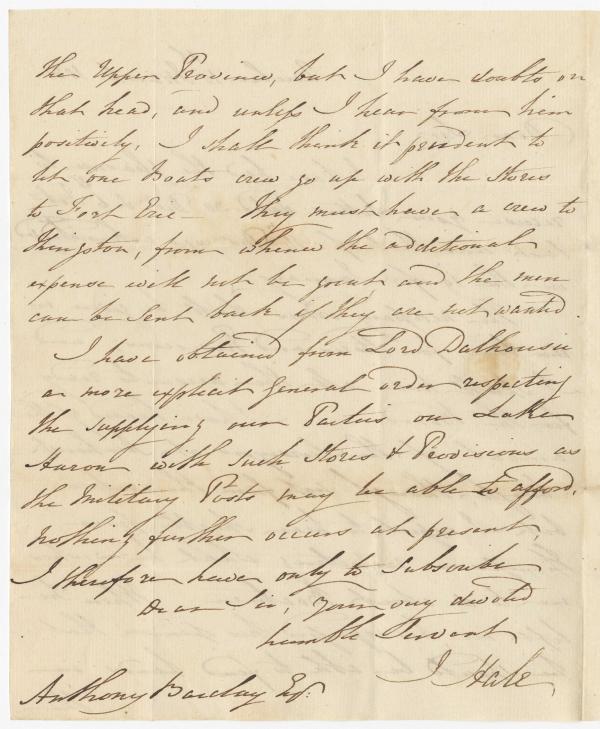 the Upper Province, but I have doubts on
that head, and unless I hear from him
positively, I shall think it prudent to
let one Boats crew go up with the Stores
to Fort Erie - They must have a crew to
Kingston, from whence the additional
expense will not be great and the men
can be sent back if they are not wanted.
I have obtained from Lord Dalhousie
a more explicit General order respecting
the supplying our Parties on Lake
Huron with such Stores & Provisions as
the Military Posts may be able to afford.
Nothing further occurs at present,
I therefore have only to subscribe
Dear Sir, your very devoted
humble Servant
J Hale
Anthony Barclay Esqr.